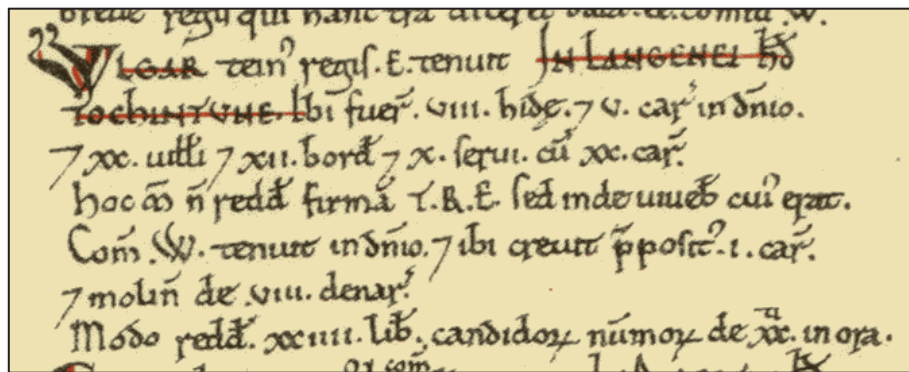 breue regis qui hanc tra
VLGAR tein' regis. E. tenuit IN LANGENEI HD
TOCHINTVNE. Ibi fuer̄. VIII. hidę. ⁊ V. car̄ in dn̄io.
⁊ XX. uiłłi ⁊ XII. bord̄ ⁊ X. serui. cū XX. car̄.
hoc m̄ n̄ redd̄ firmā T.R.E. sed inde uiueb̄ cui' erat.
Com̄ .W. tenuit in dn̄io. ⁊ ibi creuit p̄posit'. I. car̄.
⁊ molin̄ de .VIII. denar̄.
Modo redd̄. XXIIII. lib̄. candidoꝝ nūmoꝝ de XX. in ora.